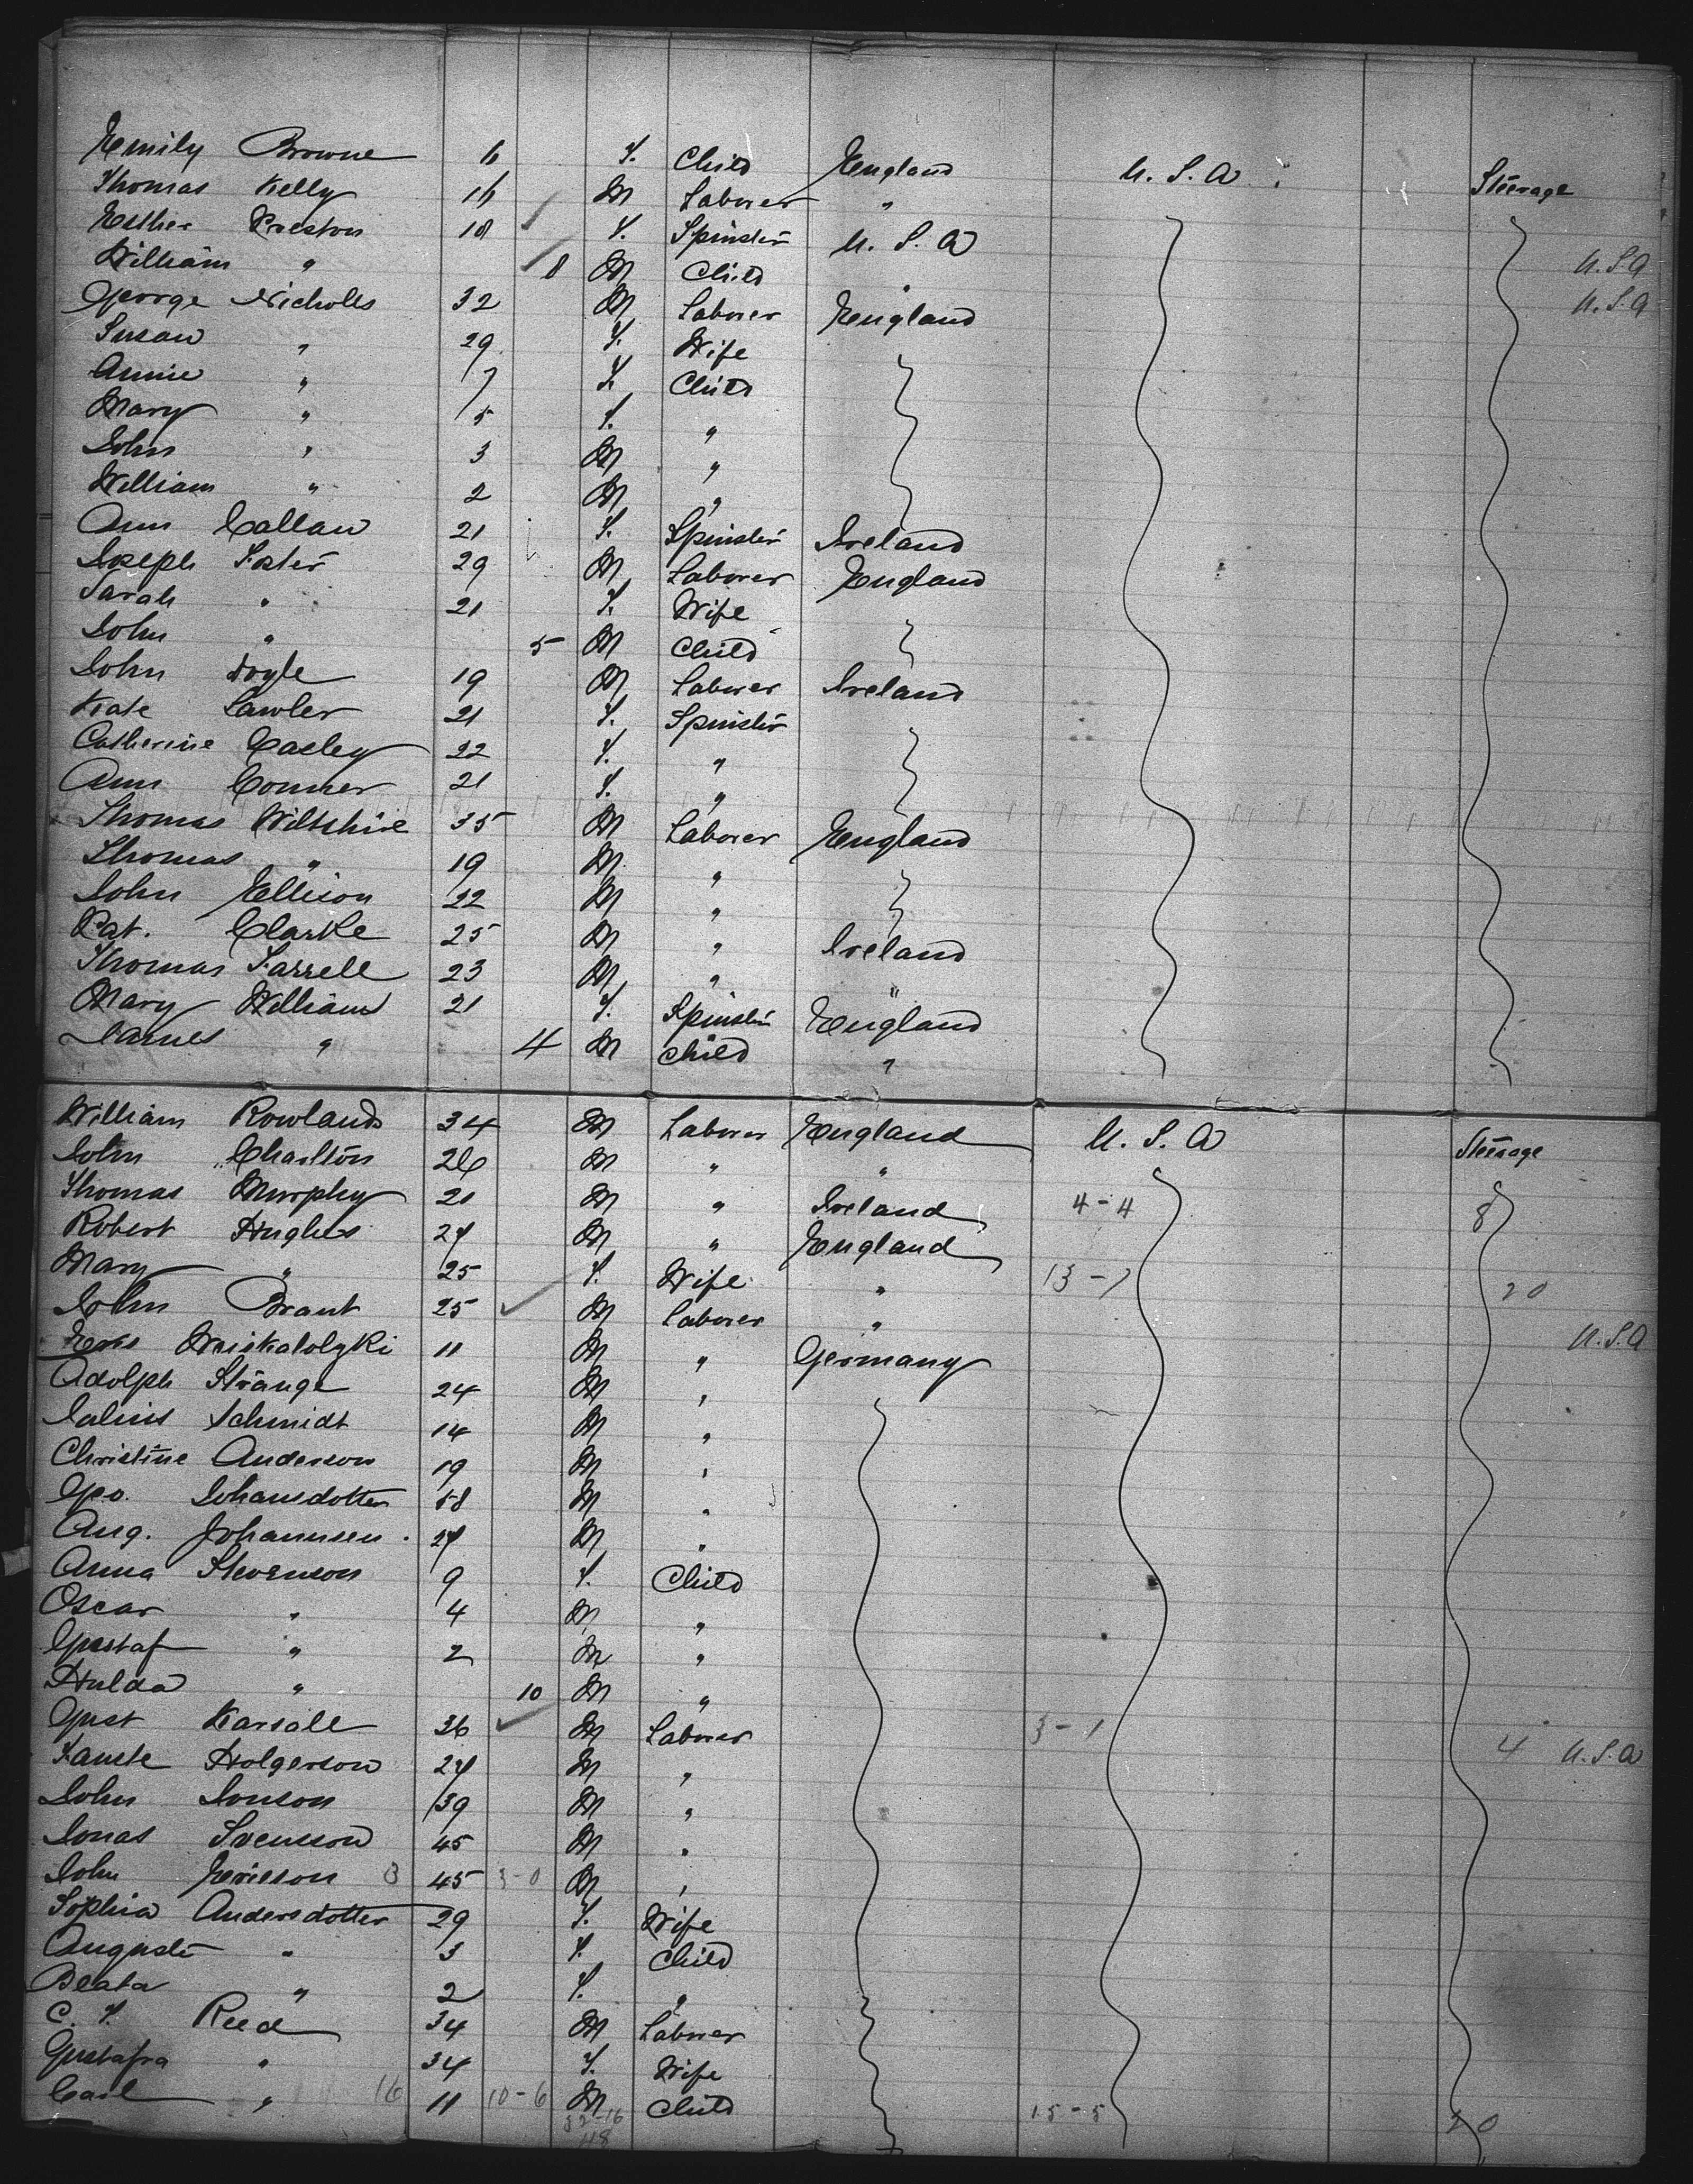 Emily Browne 6 F. Child England U. S. A Steerage
Thomas Kelly 16 M Laborer "
Esther Preston 18 F. Spinster U. S. A
William " 8 M Child " U.S.A
George Nicholls 32 M Laborer England U.S.A
Susan " 29 F. Wife
Annie " 7 F. Child
Mary " 5 F. "
John " 3 M "
William " 2 M "
Ann Callan 21 F. Spinster Ireland
Joseph Foster 29 M Laborer England
Sarah " 21 F. Wife
John " 5 M Child
John Doyle 19 M Laborer Ireland
Kate Lawler 21 F. Spinster
Catherine Casley 22 F. "
Ann Conner 21 F. "
Thomas Wiltshire 35 M Laborer England
Thomas " 19 M "
John Ellison 22 M "
Pat. Clarke 25 M " Ireland
Thomas Farrell 23 M " "
Mary Williams 21 F. Spinster England
James " 4 M Child "
William Rowlands 34 M Laborer England U. S. A Steerage
John Charlton 26 M " "
Thomas Murphy 21 M " Ireland 4-4 8
Robert Hughes 24 M " England
Mary " 25 F. Wife " 13-7 20
John Brant 25 M Laborer "
11 M " Germany U.S.A
Adolph Strange 24 M "
Julius Schmidt 14 M "
Christine Anderson 19 M "
Geo. Johansdotter 58 M "
Aug. Johannsen 24 M "
Anna Stevenson 9 F. Child
Oscar " 4 M "
Gustaf " 2 M "
Hulda " 10 M "
Gust Karsall 36 M Laborer 3-1 4 U.S.A
Holgerson 24 M "
John Jonson 39 M "
Jonas Svensson 45 M "
John Ericson 3 45 3-0 M "
Sophia Andersdotter 29 F. Wife
August " 3 F. Child
Beata " 2 F. "
C. F. Reed 34 M Laborer
Gustafva " 34 F. Wife
Carl " 16 11 10-6 M Child 15-5 20
32-16
48